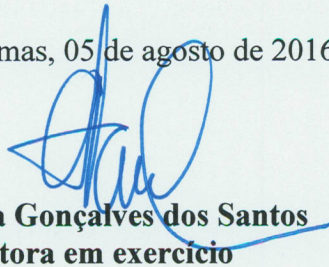 mas, 05 de agosto de 2016
a Gonçalves dos Santos
tora em exercício